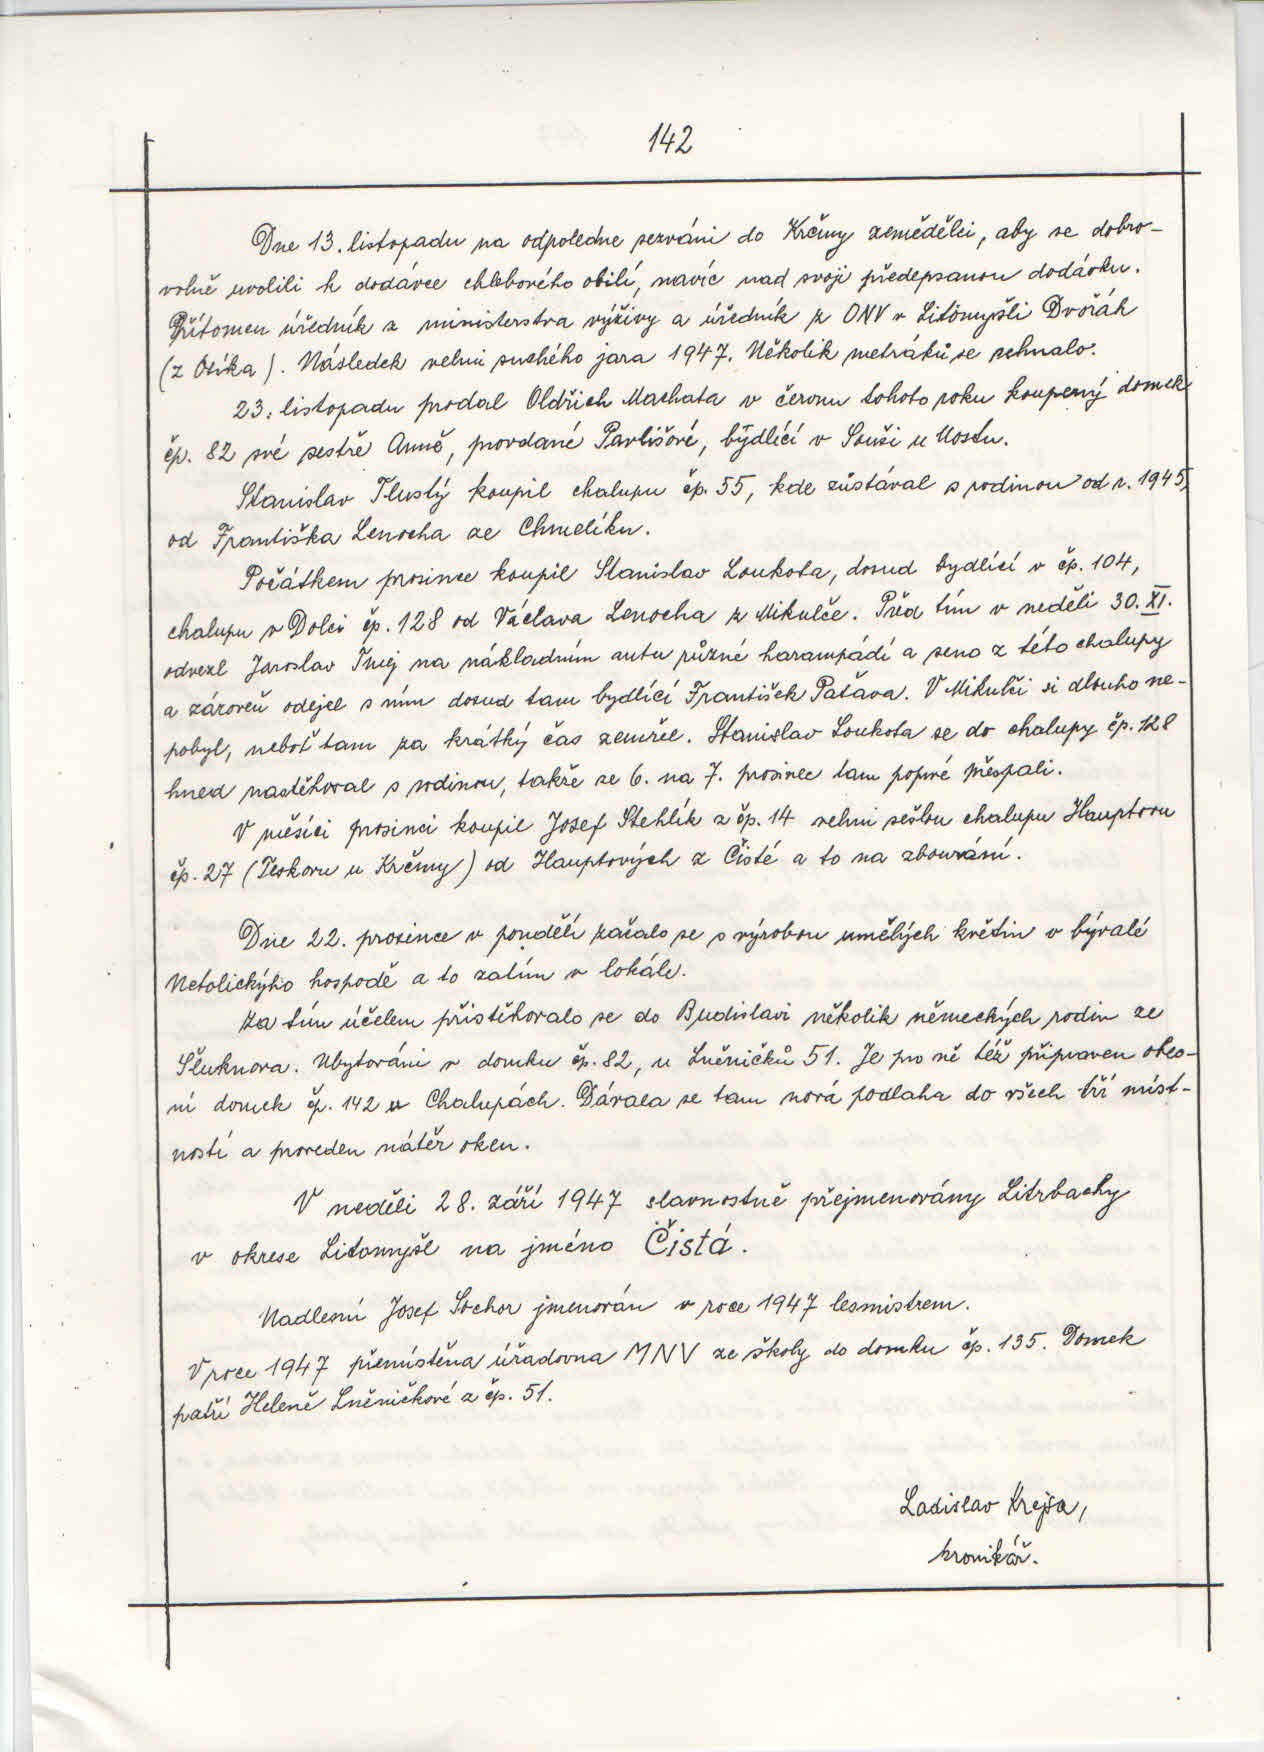 142
Dne 13. listopadu na odpoledne sezváni do Krčmy zemědělci, aby se dobro-
volně uvolili k dodávce chlebového obilí, navíc nad svoji předepsanou dodávku.
Přítomen úředník z ministerstva výživy a úředník z ONV v Litomyšli Dvořák
(z Osíka). Následek velmi suchého jara 1947. Několik metráků se sehnalo.
23. listopadu prodal Oldřich Machata v červnu tohoto roku koupený domek
čp. 82 své sestře Anně, provdané Pavlišové, bydlící v Souši u Mostu.
Stanislav Tlustý koupil chalupu čp. 55, kde zůstával s rodinou od r. 1945,
od Františka Lenocha ze Chmelíku.
Počátkem prosince koupil Stanislav Loukota, dosud bydlící v čp. 104,
chalupu v Dolci čp. 128 od Václava Lenocha z Mikulče. Před tím v neděli 30. XI.
odvezl Jaroslav Tmej na nákladním autu různé harampádí a seno z této chalupy
a zároveň odejel s ním dosud tam bydlící František Paťava. V Mikulči si dlouho ne-
pobyl, neboť tam za krátký čas zemřel. Stanislav Loukota se do chalupy čp. 128
hned nastěhoval s rodinou, takže ze 6. na 7. prosinec tam poprvé přespali.
V měsíci prosinci koupil Josef Stehlík z čp. 14 velmi sešlou chalupu Hauptovu
čp. 27 (Peskovu u Krčmy) od Hauptových z Čisté a to na zbourání.
Dne 22. prosince v pondělí začalo se s výrobou umělých květin v bývalé
Netolickýho hospodě a to zatím v lokále.
Za tím účelem přistěhovalo se do Budislavi několik německých rodin ze
Šluknova. Ubytováni v domku čp. 82, u Lněničků 51. Je pro ně též připraven obec-
ní domek čp. 142 v Chalupách. Dávala se tam nová podlaha do všech tří míst-
ností a proveden nátěr oken.
V neděli 28. září 1947 slavnostně přejmenovány Litrbachy
v okrese Litomyšl na jméno Čistá.
Nadlesní Josef Sochor jmenován v roce 1947 lesmistrem.
V roce 1947 přemístěna úřadovna MNV ze školy do domku čp. 135. Domek
patří Heleně Lněničkové z čp. 51.
Ladislav Krejsa,
kronikář.